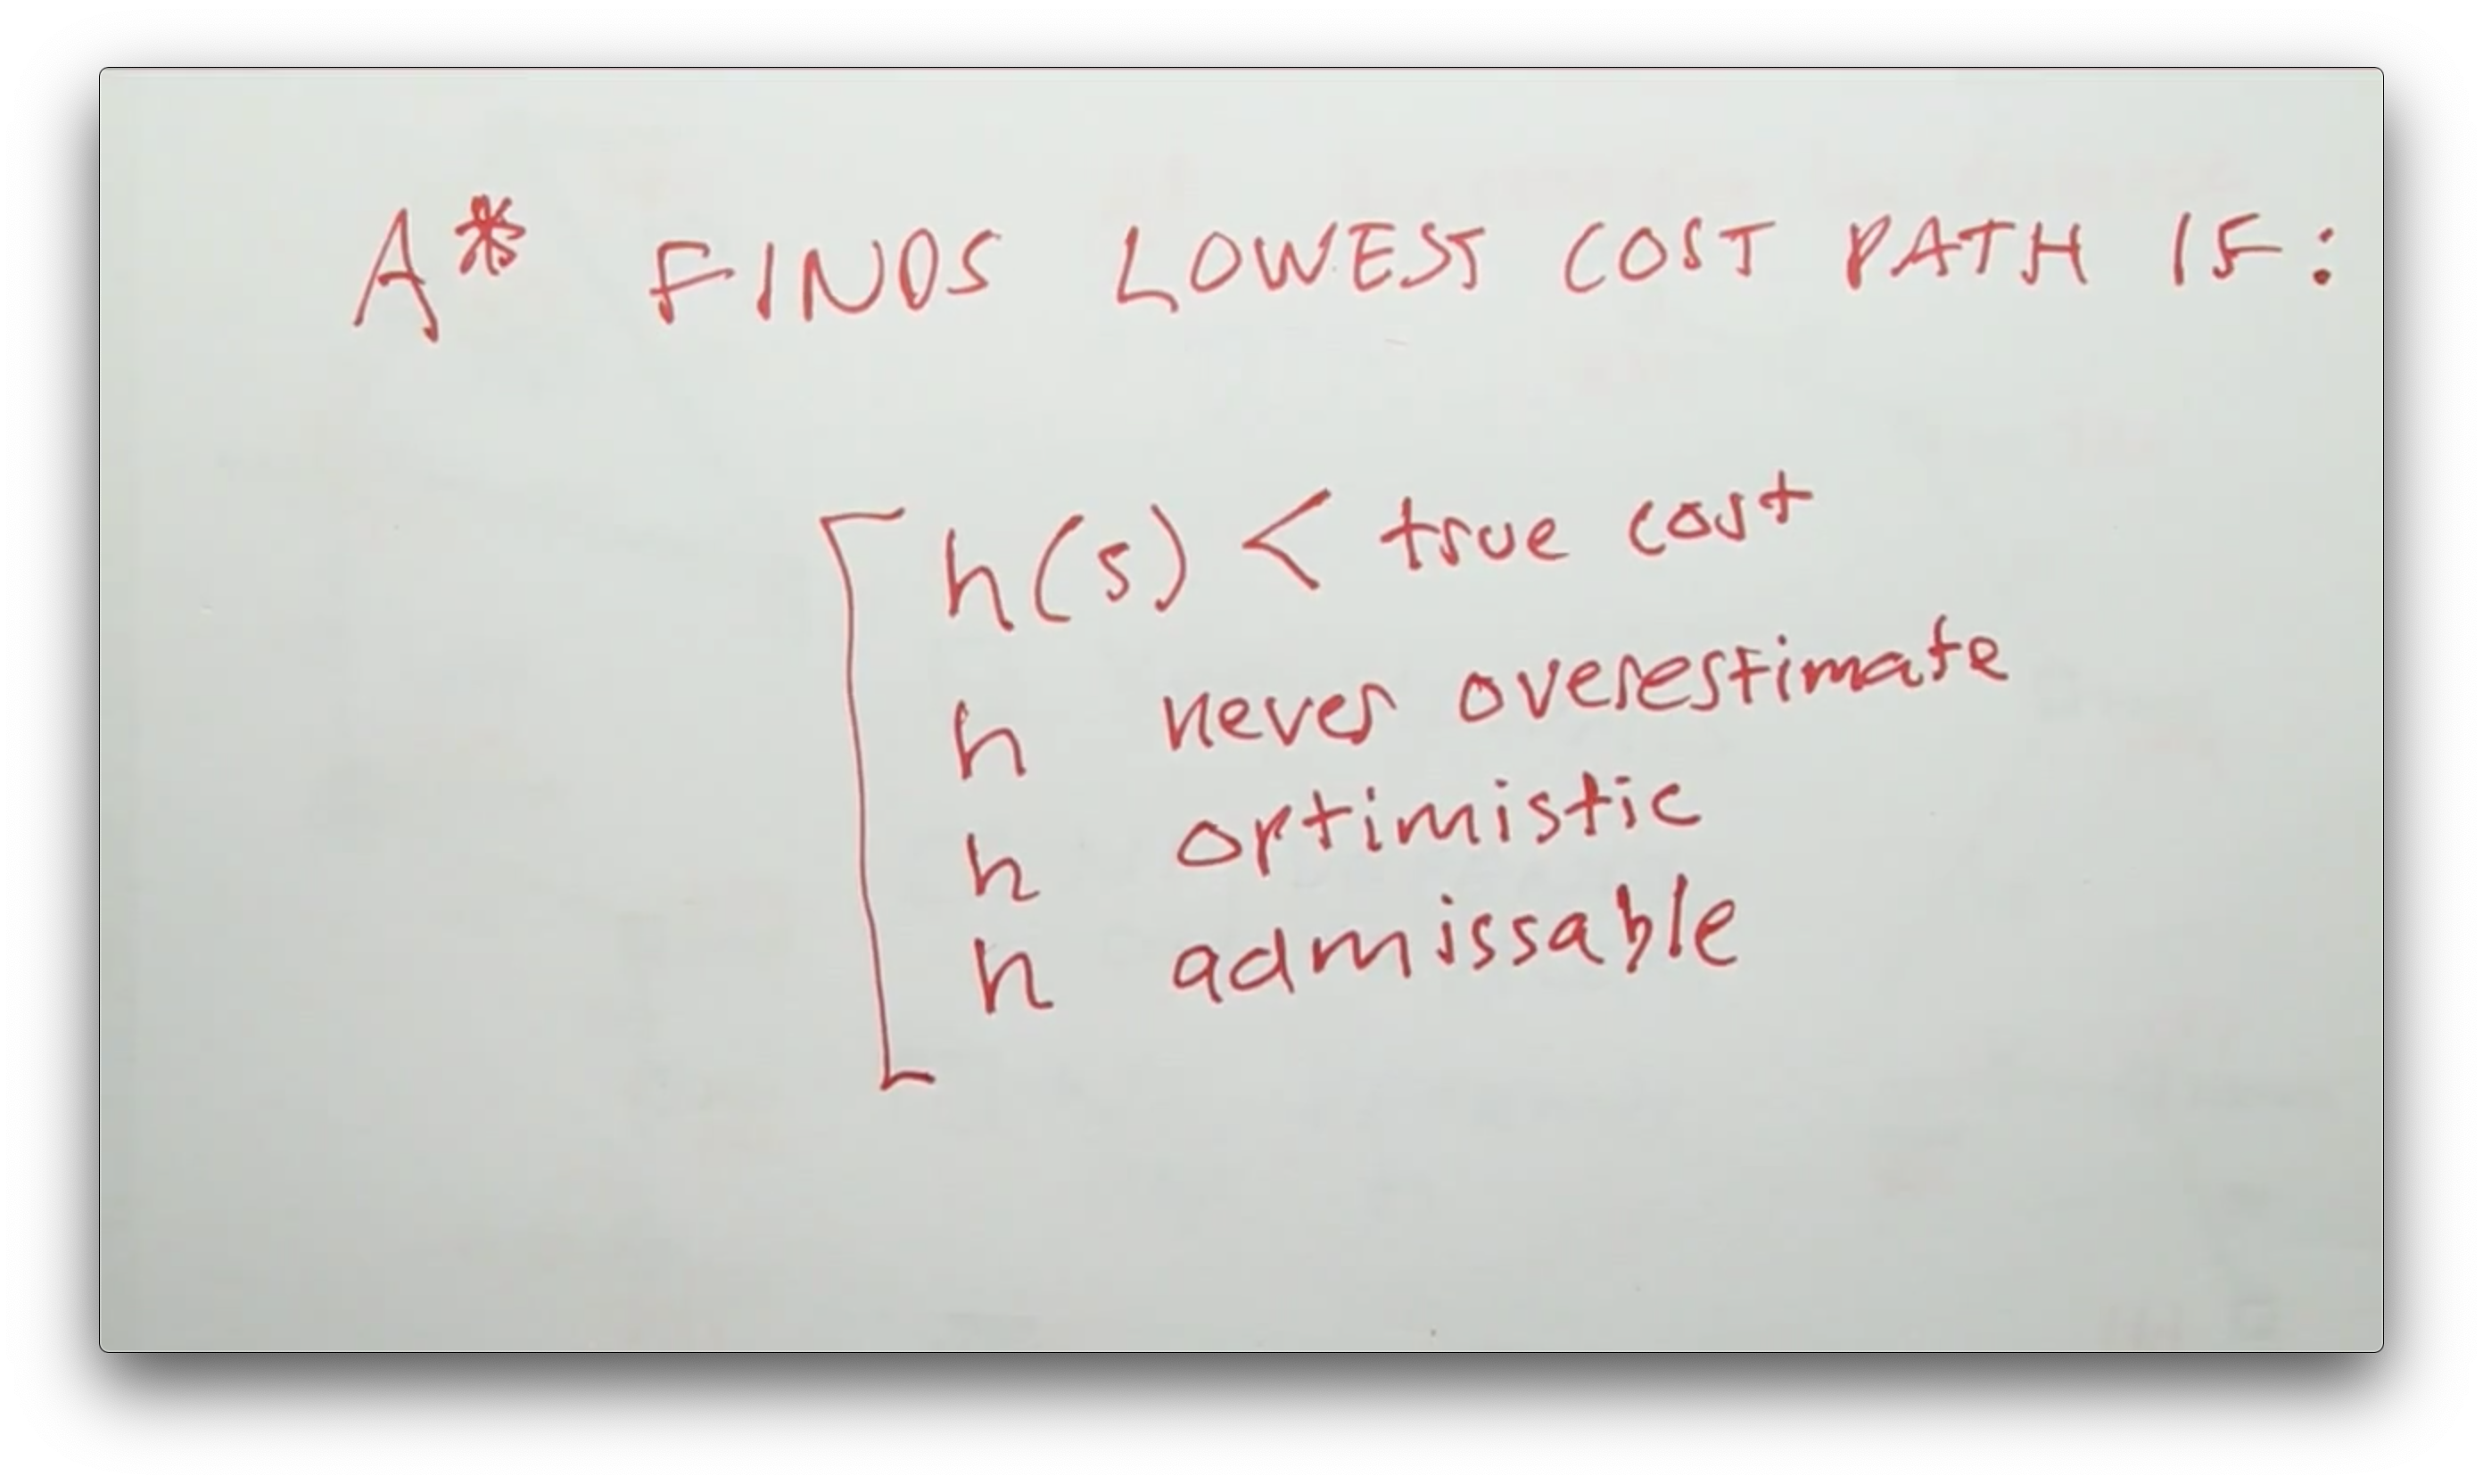 A* FINDS LOWEST COST PATH IF:
h(s) < true cost
h never overestimate
h optimistic
h admissable